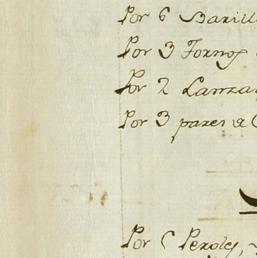 Por 6 Barill
Por 3 Fornos
Por 2 Lanza
Por 3 pares a
Por 6 Peroles,